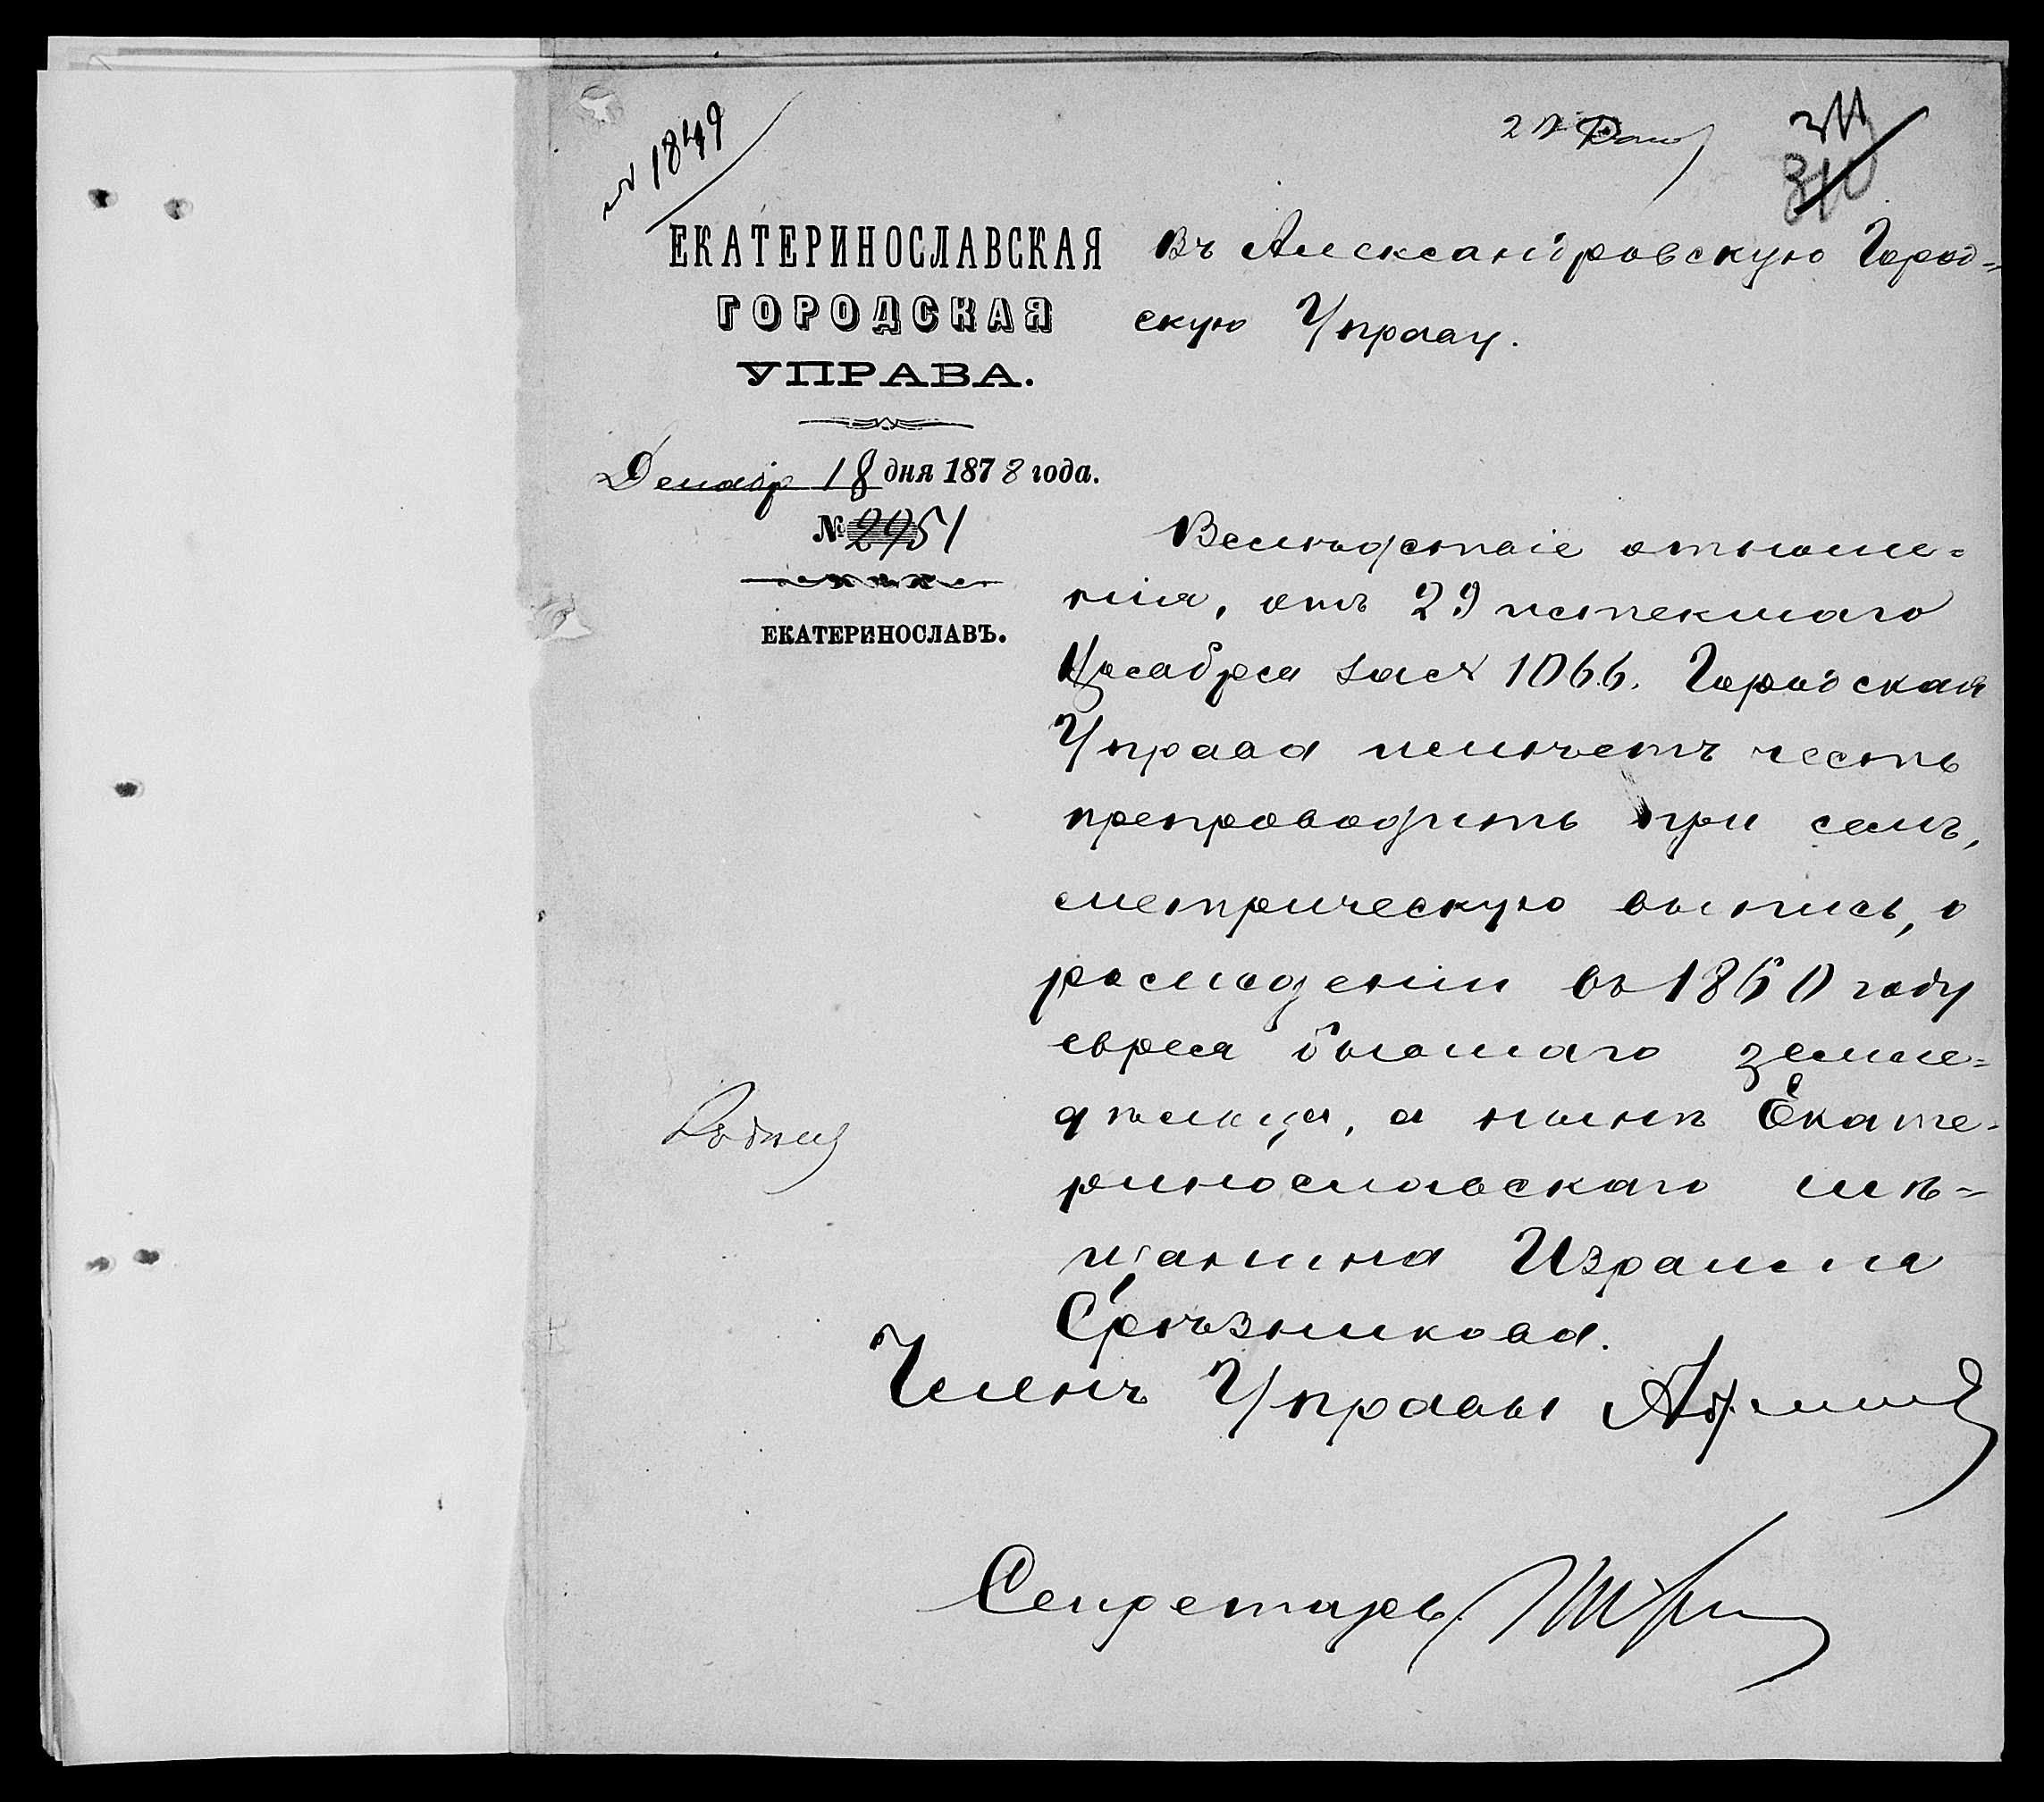 № 1849
311
310
ЕКАТЕРИНОСЛАВСКАЯ
ГОРОДСКАЯ
УПРАВА.
Декабр 18 дня 1878 года.
№ 2951
ЕКАТЕРИНОСЛАВЪ.
Въ Александровскую Город=
скую Управу.
Вслѣдствіе отноше=
нія, отъ 29 истекшаго
за № 1066. Городская
Управа имѣетъ честь
препроводить при семъ,
метрическую выпись, о
рождении въ 1860 году
еврея бывшаго земле=
дѣльца, а нынѣ Екате=
ринославскаго мѣ=
щанина Израиля
Срѣзникова.
Членъ Управы
Секретарь